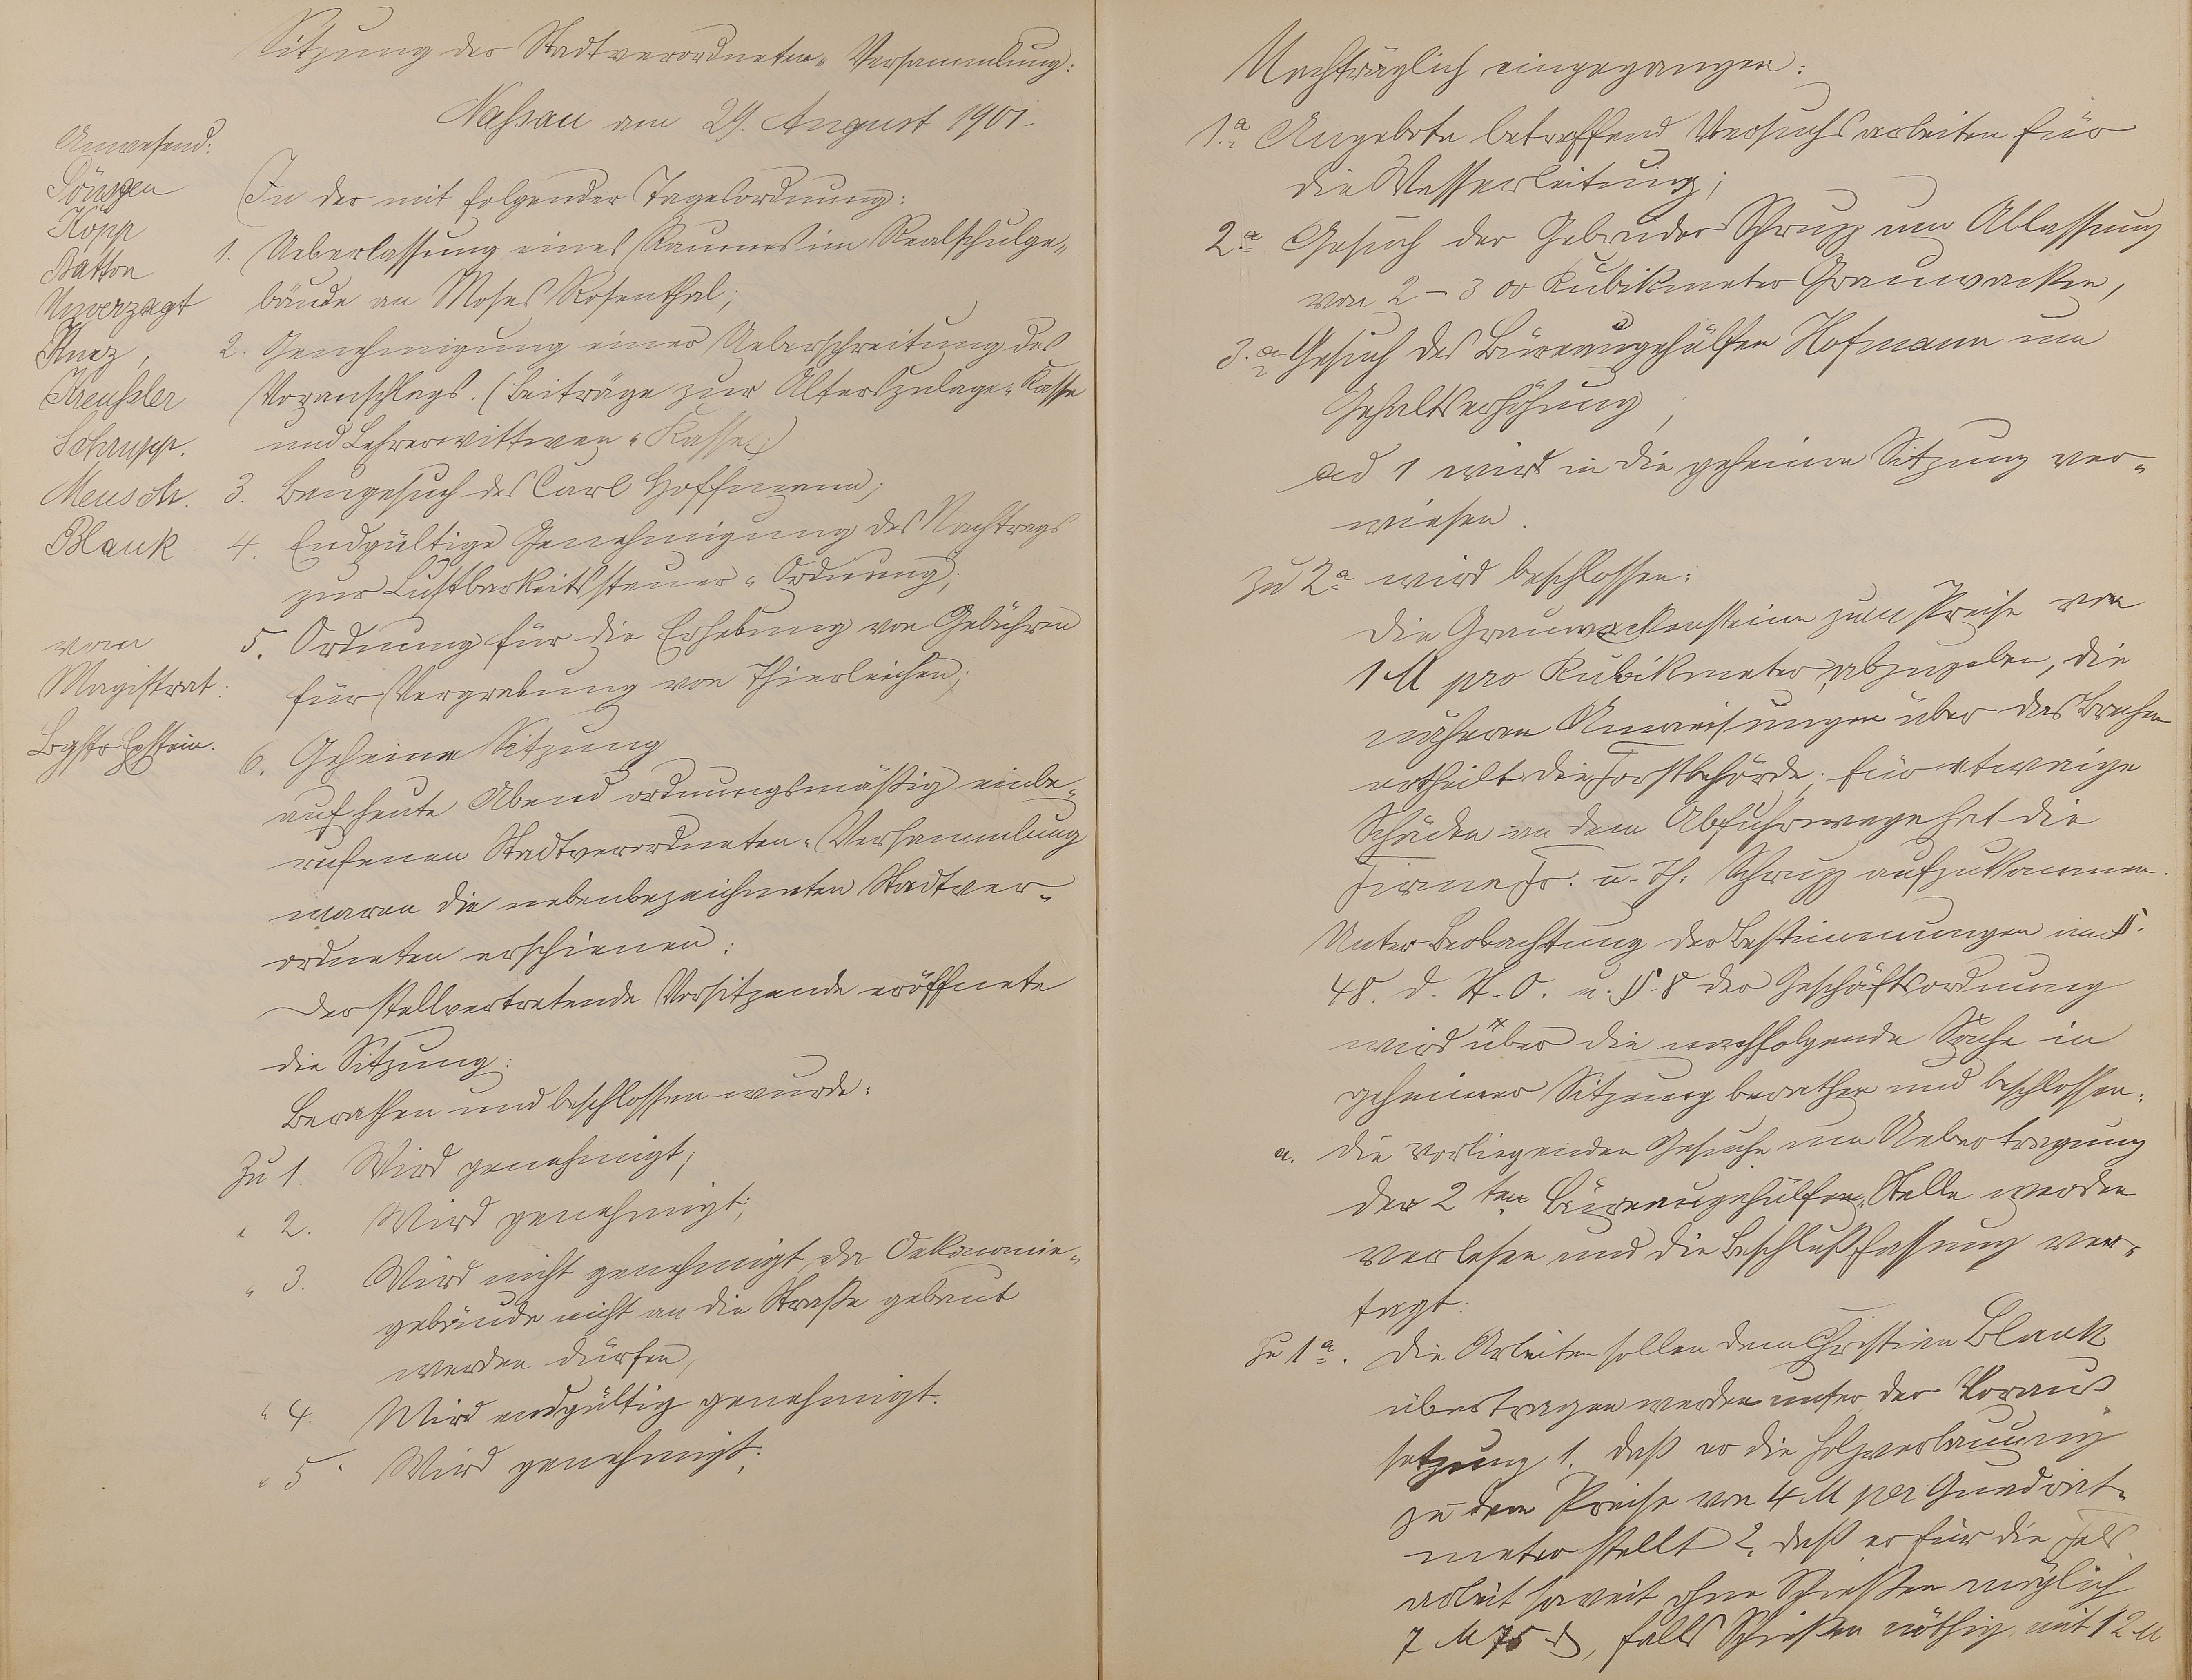 Sitzung der Stadtverordneten-Versammlung:
Nassau am 29. August 1901.
Anwesend:
Köpp
Batton
Unverzagt
Kreußler
Schrupp.
Meusch.
Blank
vom
Magistrat:
Bgstr Epstein.
In der mit folgender Tagesordnung:
1. Ueberlassung eines Raumes im Realschulge-
bäude an Moses Rosenthal;
2. Genehmigung einer Ueberschreitung des
Voranschlags. (Beiträge zur Alterszulage-Kasse
und Lehrerwittwen-Kasse;)
3. Baugesuch des Carl Hoffmann;
4. Endgültige Genehmigung des Nachtrags
zur Lustbarkeitssteuer-Ordnung;
5. Ordnung für die Erhebung von Gebühren
für Vergrabung von Thierleichen;
6. Geheime Sitzung
auf heute Abend ordnungsmäßig einbe-
rufenen Stadtverordneten-Versammlung
waren die nebenbezeichneten Stadtver-
ordneten erschienen:
Der stellvertretende Vorsitzende eröffnete
die Sitzung:
Berathen und beschlossen wurde:
Zu 1. Wird genehmigt;
" 2. Wird genehmigt;
" 3. Wird nicht genehmigt, da Oekonomie-
gebäude nicht an die Straße gebaut
werden dürfen,
" 4. Wird endgültig genehmigt.
" 5. Wird genehmigt;
Nachträglich eingegangen:
1.a Angebote betreffend Versuchsarbeiten für
die Wasserleitung;
2a Gesuch der Gebrüder Schrupp um Ablassung
von 2-300 Kubikmeter Grauwacken,
3.a Gesuch des Büreaugehülfen Hofmann um
Gehaltserhöhung;
ad 1 wird in die geheime Sitzung ver-
wiesen.
zu 2a wird beschlossen:
Die Grauwackensteine zum Preise von
1 M pro Kubikmeter abzugeben, die
näheren Anweisungen über das Brechen
ertheilt die Forstbehörde; für etwaige
Schäden an dem Abfuhrwege hat die
Firma Fr. u. Th. Schrupp aufzukommen.
Unter Beobachtung der Bestimmungen im §.
48. d. St.O. u. §. 8 der Geschäftsordnung
wird über die nachfolgende Sache in
geheimer Sitzung berathen und beschlossen:
a. die vorliegenden Gesuche um Uebertragung
der 2ten Büreaugehülfen-Stelle werden
verlesen und die Beschlußfassung ver-
tagt.
zu 1a. Die Arbeiten sollen dem Christian Blank
übertragen werden unter der Voraus-
setzung 1. daß er die Holzverbauung
zu dem Preise von 4 M per Quadrat-
meter stellt 2. daß er für die Fels-
arbeit soweit ohne Schießen möglich
7 M 75 ₰, falls Schießen nöthig mit 12 M